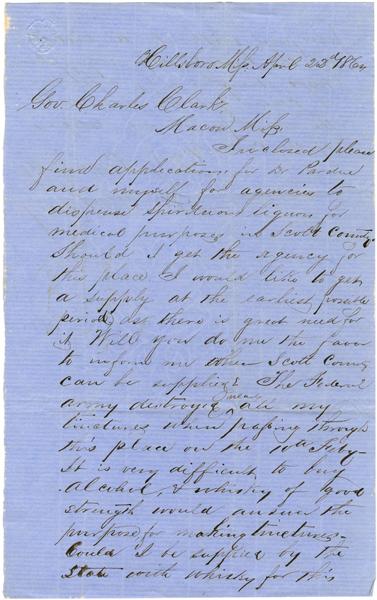 Hillsboro Ms. April 22d 1864
Gov. Charles Clark
Macon Miss
Inclosed please
find applications for Dr Pardue
and myself for agencies to
dispense Spirituous liquors for
medical purposes in Scott County
Should I get the agency for
this place I would like to get
a supply at the earliest possible
period, as there is great need for
it. Will you do me the favor
to inform me when Scott County
can be supplied. The Federal
army destroyed nearly all my
tinctures when passing through
this place on the 10th Feby-
It is very difficult to buy
Alcohol, & whisky of good
strength would answer the
purpose for making tinctures-
Could I be supplied by the
State with whisky for this